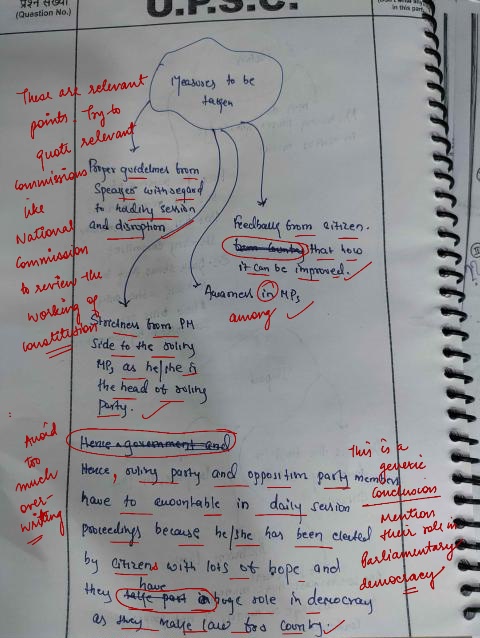 प्रश्न संख्या
(Question No.)
U.P.S.C.
in this part
Measures to be
taken
These are relevant
points. Try to
quote relevant
commissions
like
National
Commission
to review the
working of
constitution
Proper guidelines from
Speaker with regard
to holding session
and disruption
Feedback from citizen.
that how
it can be improved.
Awarness in MPs
among
Strictness from PM
side to the ruling
MPs as he/she is
the head of ruling
party.
Avoid
too
much
over-
writing
Hence government and
Hence, ruling party and opposition party members
have to accountable in daily session
proceedings because he/she has been elected
by citizens with lots of hope and
have
they take part in huge role in democracy
as they make law for country.
This is a
generic
conclusion
mention
their role in
Parliamentary
democracy